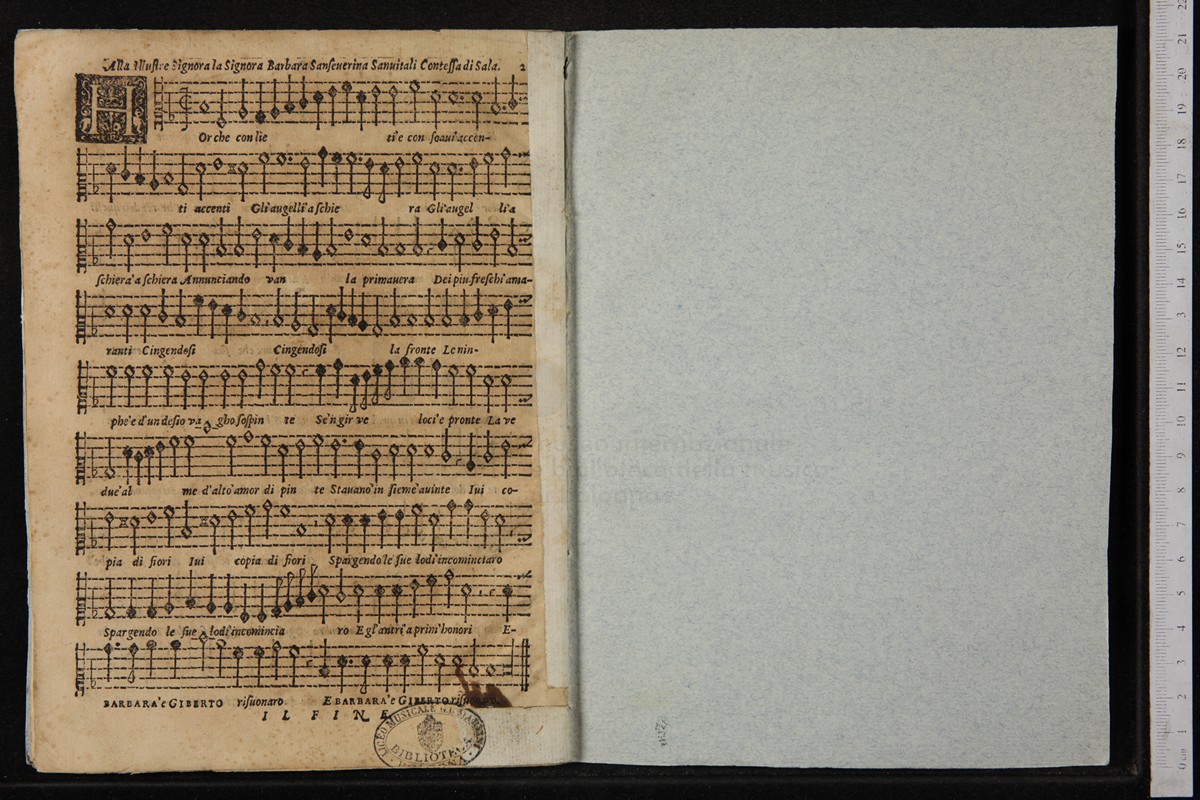 Alla Illustre Signora la Signora Barbara Sanseuerina Sanuitali Contessa di Sala. 2
H
Or che con lie ti'e con soaui'accen-
ti accenti Gli'augelli'a schie ra Gli'augel li'a
schiera'a schiera Annunciando van la primauera Dei piu freschi'ama-
ranti Cingendosi Cingendosi la fronte Le nin-
phe'e d'un desio va gho sospin te Se'n gir ve loci'e pronte La ve
due'al me d'alto'amor di pin te Stauano'in sieme'auinte Iui co-
pia di fiori Iui copia di fiori Spargendo'le sue lodi'incominciaro
Spargendo le sue lodi'incomincia ro E gl'antri'a prim'honori E-
BARBARA'e GIBERTO risuonaro E BARBARA'e GIBERTO
IL FINE
LICEO MUSICALE G.B. MARTINI
BIBLIOTECA
BOLOGNA